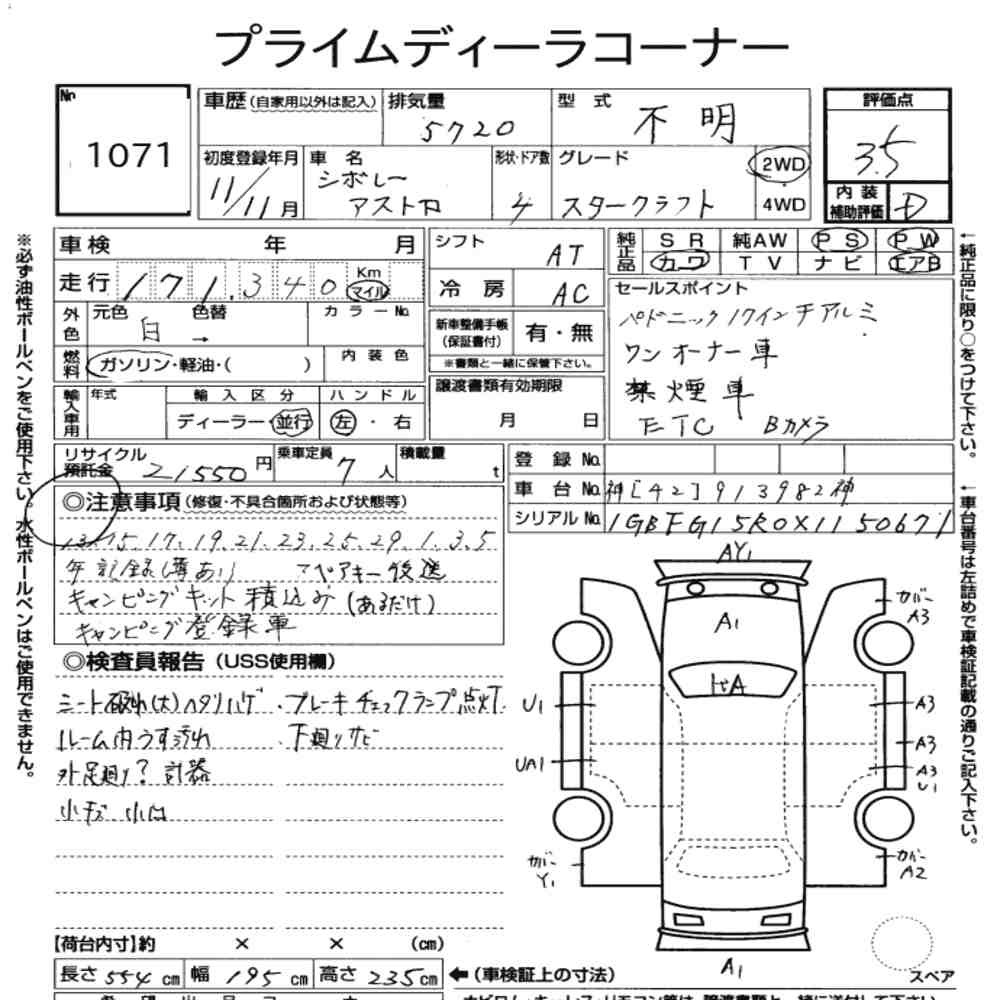 プライムディーラーコーナー
No 1071
車歴(自家用以外は記入) 排気量 5720 型式 不明 評価点 3.5
初度登録年月 11/11月 車名 シボレー アストロ 形状・ドア数 4 グレード スタークラフト 2WD・4WD 内装補助評価 D
車検 年 月
走行 171.340 Km マイル
外色 元色 白 → 色替 カラーNo.
燃料 ガソリン・軽油・( ) 内装色
輸入車用 年式 輸入区分 ディーラー・並行 ハンドル 左・右
シフト AT
冷房 AC
新車整備手帳(保証書付) 有・無
※書類と一緒に保管下さい。
譲渡書類有効期限
月 日
純正品 SR 純AW PS PW
カワ TV ナビ エアB
セールスポイント
17インチアルミ
ワンオーナー車
禁煙車
ETC Bカメラ
リサイクル預託金 21550円 乗車定員 7人 積載量 t
登録No.
車台No. 神[42]913982神
シリアルNo. 1GBFG15R0X1150671
◎注意事項(修復・不具合箇所および状態等)
13.15.17.19.21.23.25.29.1.3.5
年記録簿あり スペアキー後送
キャンピングキット積込み(あるだけ)
キャンピング登録車
◎検査員報告(USS使用欄)
シート破れ(大)ヘタリハゲ.ブレーキチェックランプ点灯
ルーム内うす汚れ 下廻りサビ
外足廻り? 計器
小キズ 小凹
AY1
A1
カバー A3
U1
A3
A3
UA1
A3 U1
カバー Y1
カバー A2
A1
スペア
【荷台内寸】約 × × (cm)
長さ 554 cm 幅 195 cm 高さ 235 cm ←(車検証上の寸法)
※必ず油性ボールペンをご使用下さい。水性ボールペンはご使用できません。
←純正品に限り○をつけて下さい。
←車台番号は左詰めで車検証記載の通りご記入下さい。